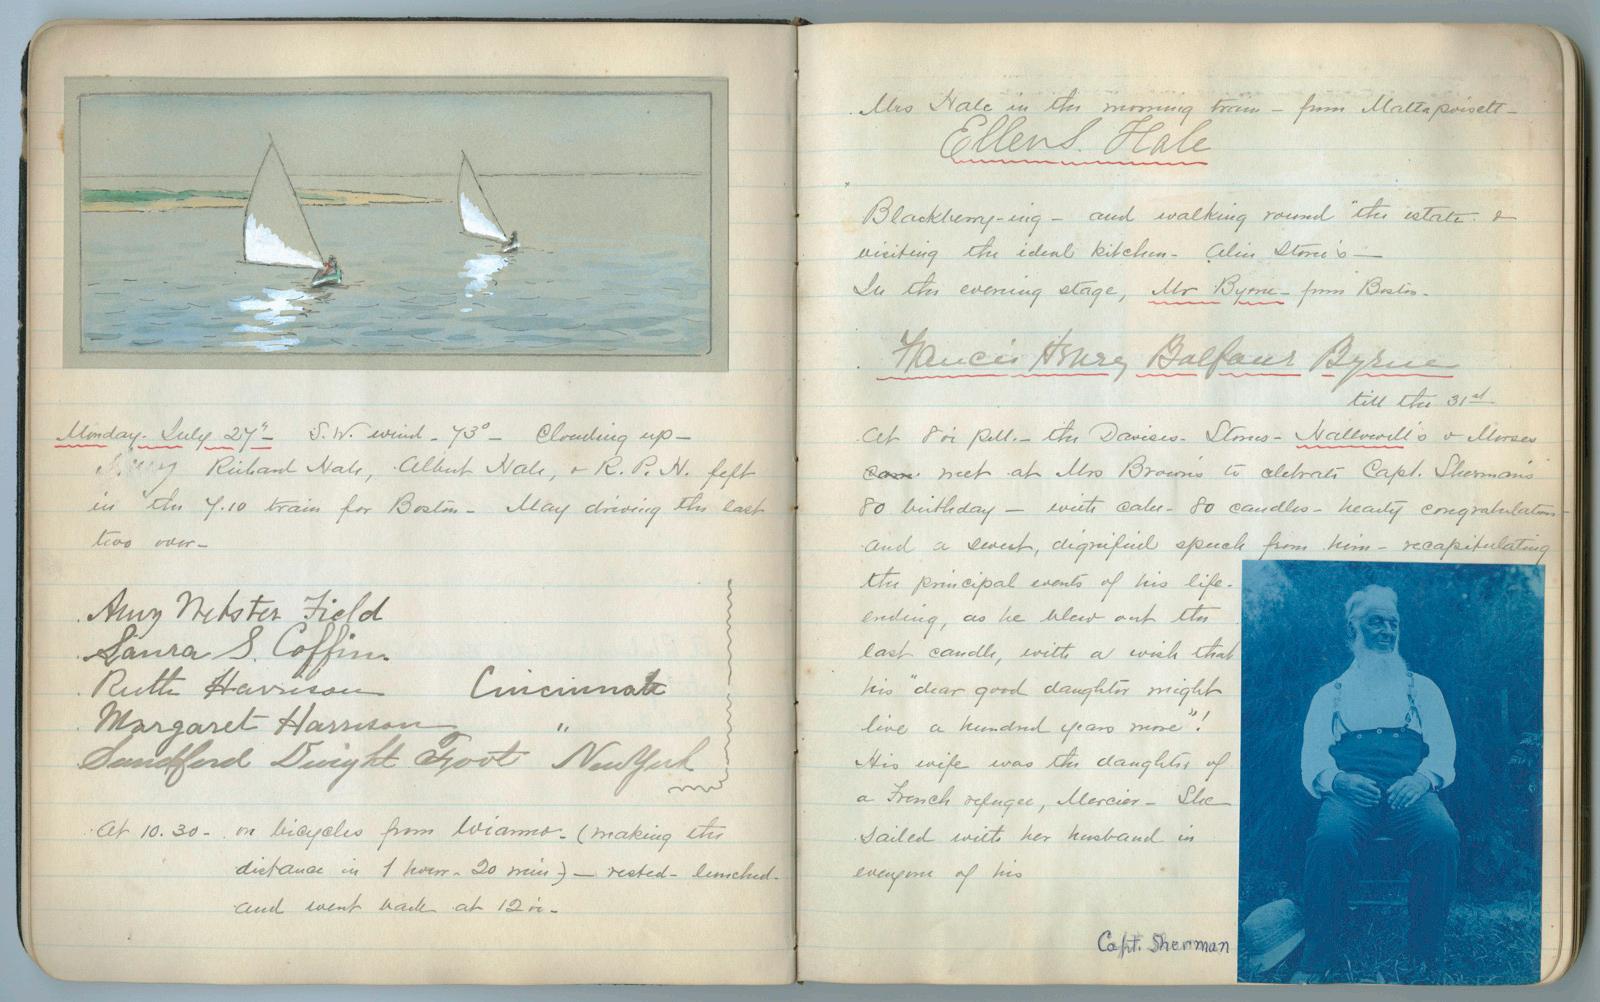 Monday. July 27" S.W. wind - 73° - Clouding up -
Richard Hale, Albert Hale, & R. P. H. left
in the 7.10 train for Boston - May driving the last
two over -
Amy Webster Field
Laura S. Coffin.
Ruth Harrison Cincinnati
Margaret Harrison "
Sandford Dwight Foot New York
At 10.30 - on bicycles from Wianno - (making the
distance in 1 hour - 20 min) - rested - lunched -
and went back at 12
Mrs Hale in the morning train - from Mattapoisett -
Ellen S. Hale
Blackberry-ing - and walking round "the estate &
visiting the ideal kitchen -
In the evening stage, Mr Byrne - from Boston -
Francis Henry Balfour Byrne
till the 31st
At 8 P.M. - the Davises - Stones - Hallowell's & Morses
came met at Mrs Brown's to celebrate Capt. Sherman's
80 birthday - with cake - 80 candles - hearty congratulations -
and a sweet, dignified speech from him - recapitulating
the principal events of his life -
ending, as he blew out the
last candle, with a wish that
his "dear good daughter might
live a hundred years more"!
His wife was the daughter of
a French refugee, Mercier - She
sailed with her husband in
everyone of his
Capt. Sherman